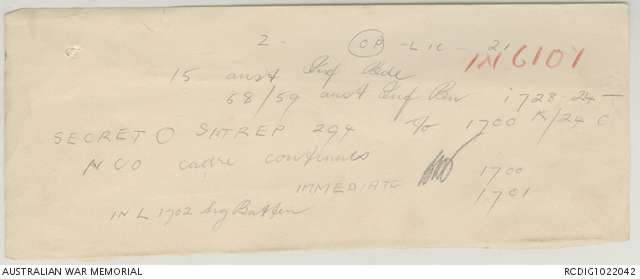 2 - OP - LIC - 21
IN 6107
15 aust Inf Bde
58/59 aust Inf Bn 1728-24
SECRET O SITREP 294 1700 K/24 C
NCO cadre continues 1700
IMMEDIATE 1701
IN L 1702
AUSTRALIAN WAR MEMORIAL
RCDIG1022042